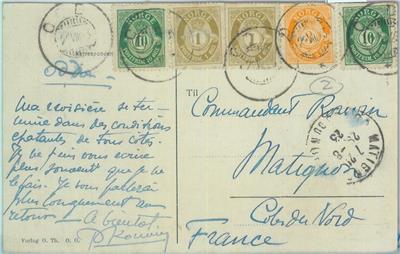 NORGE NORGE NORGE NORGE NORGE
10 1 1 10
Korrespondance
Til
Ma croisière se ter-
mine dans des conditions
épatantes de tous côtés.
Je ne puis vous écrire
plus souvent que je ne
le fais. Je vous parlerai
plus longuement au
retour.
A bientôt
Commandant
Matignon
Côtes du Nord
France
MATIGNON
Verlag O. Th. O. G.
2